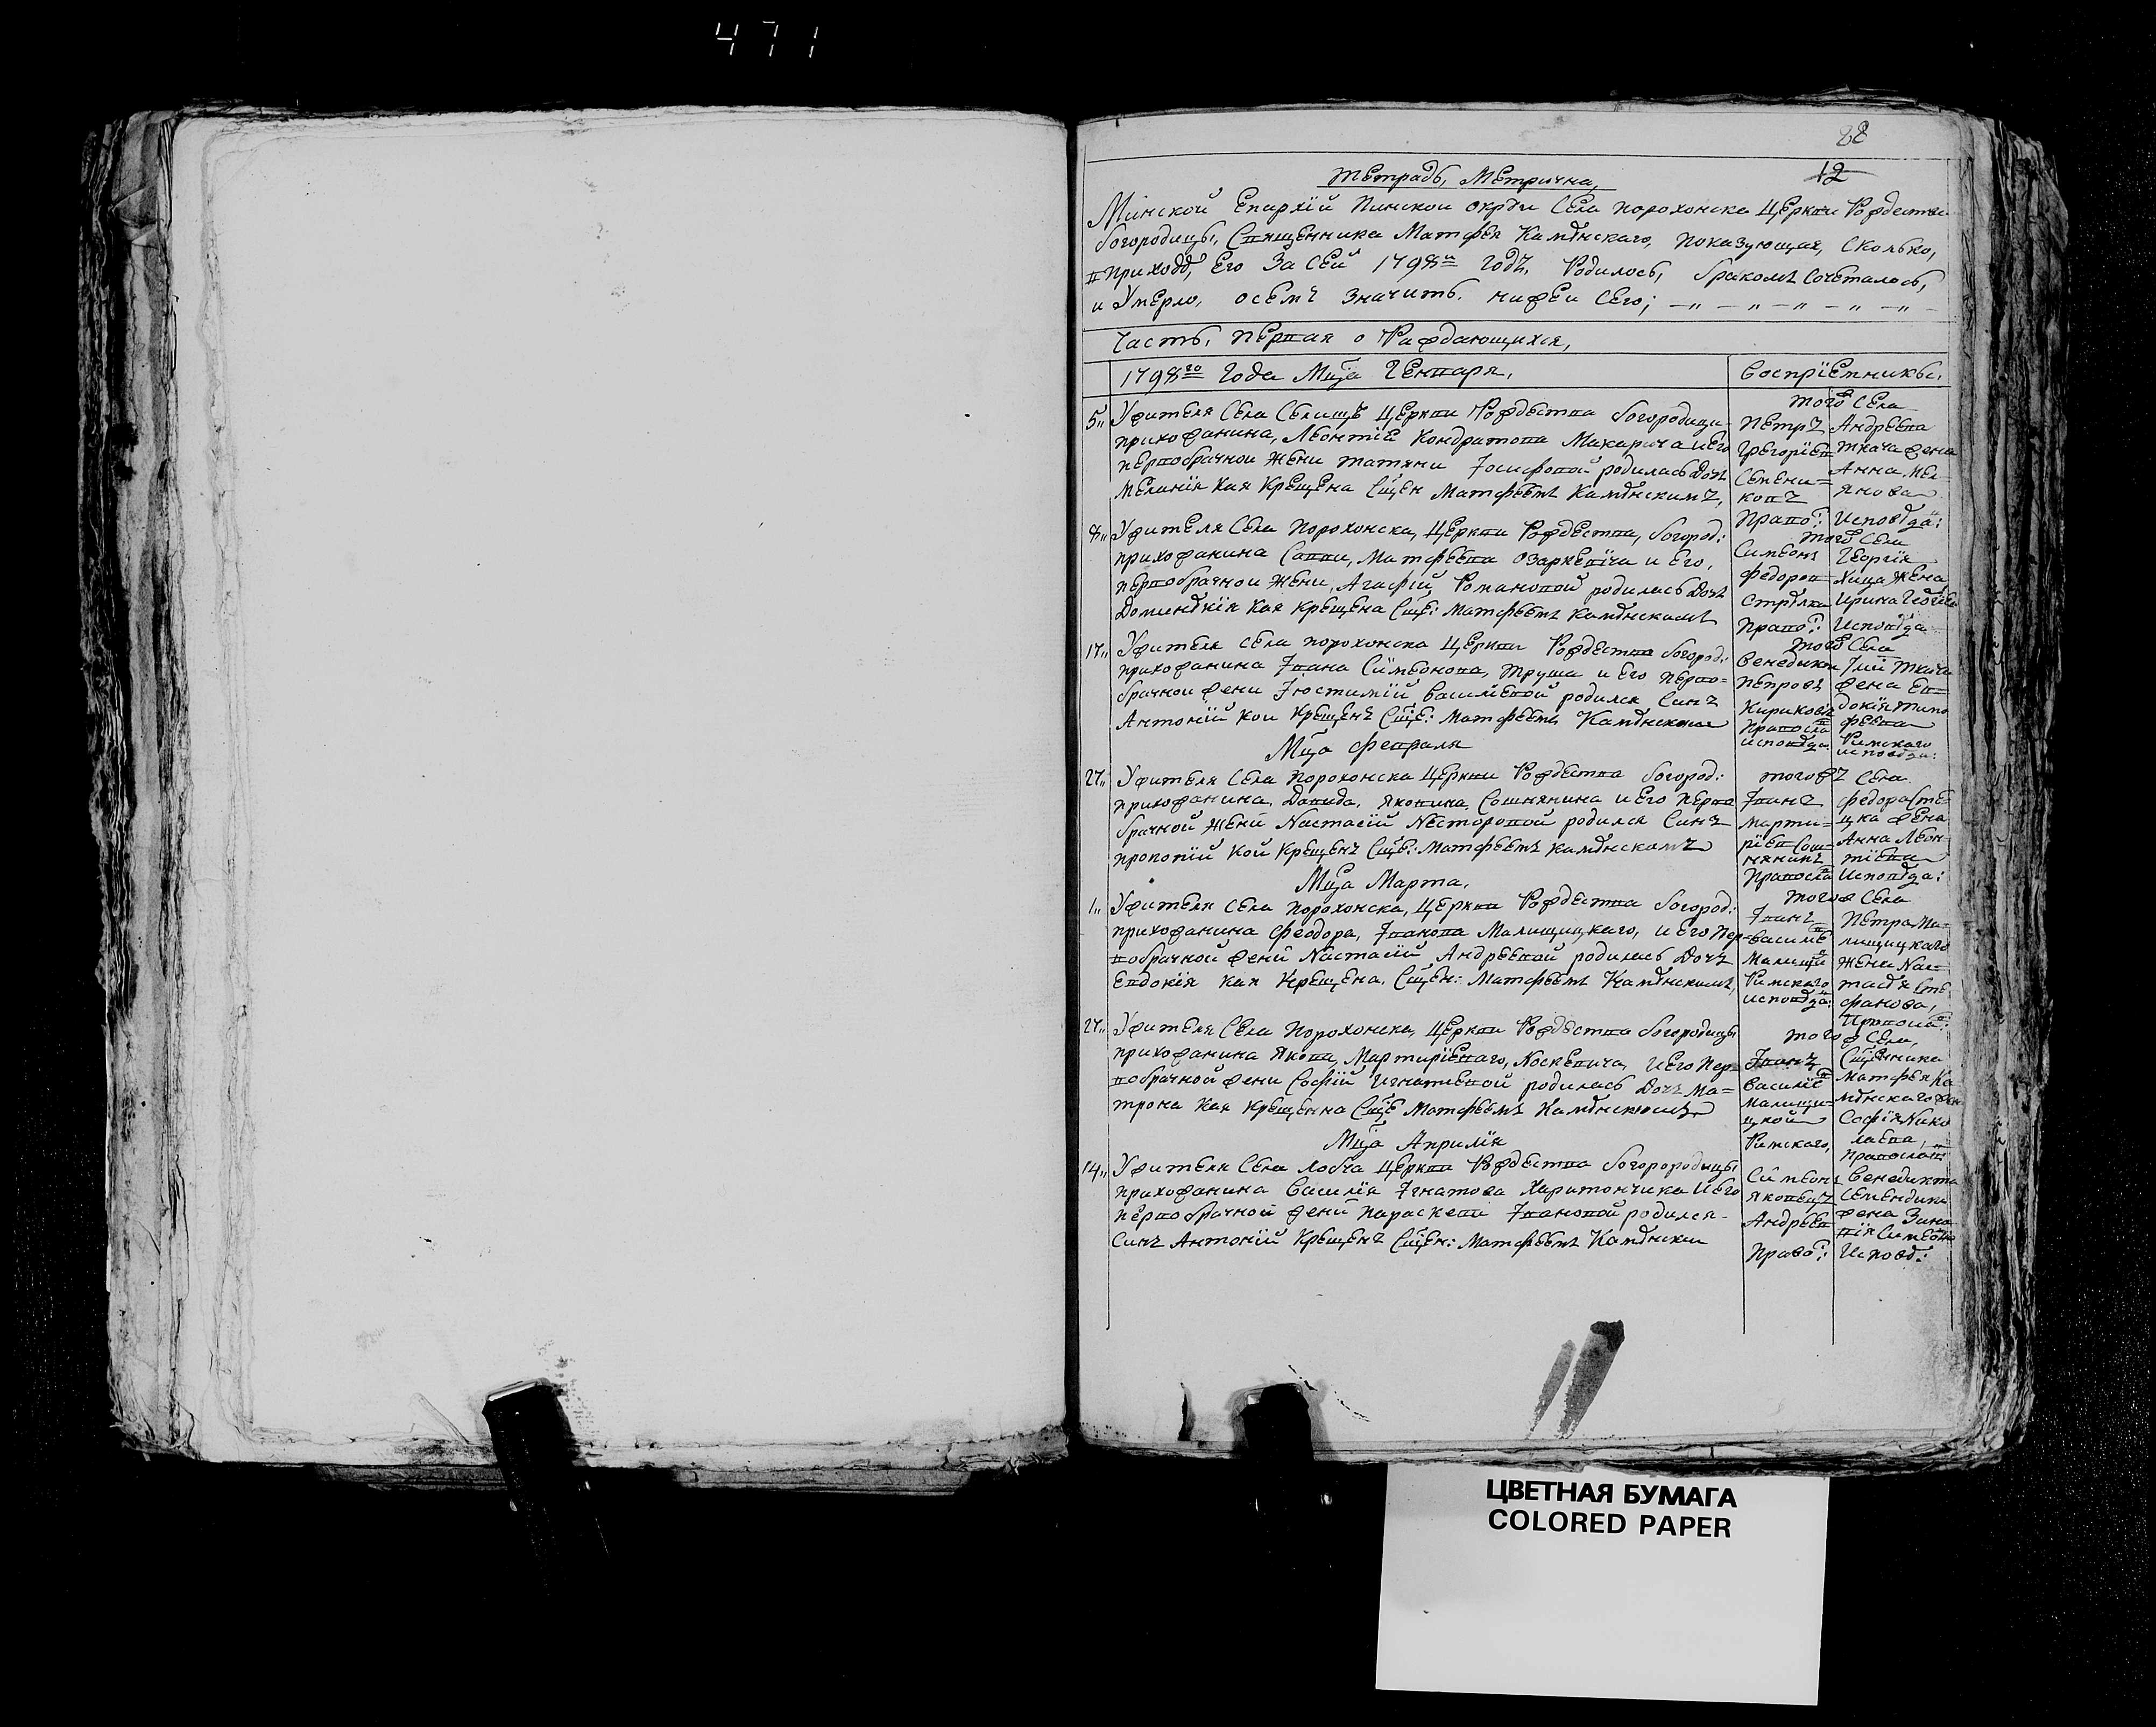 471
28
12
Тетрадь, Метрична,
Минской Епархїи Пинскои окрѣи Села порохонска Церкви Рождества
богородицы, Священника Матфея Камѣнскаго, показующая, сколько,
в приходѣ, Его За Сей 1798й годъ, Родилось, бракомъ Сочеталось,
и Умерло, осемъ значитъ, нижеи Сего;
Часть, первая о Раждающихся,
1798го Года Мца Генваря,
Воспріемники,
5,, Ужителя Села Селищъ Церкви Рождества богородици
прихожанина, Леонтїй Кондратова Макарича и Его
первобрачнои жени татяни Іосифовой родилась Дочъ
Меланїя Кая Крещена Сщен Матфеемъ Камѣнскимъ,
того Села
Петръ
Грегорїев
Семени=
ковъ
Право:
Андреева
ткача жена
Анна Мел
янова
Исповѣда:
8,, Ужителя Села Порохонска, Церкви Рождества, богород:
прихожанина Саввы, Матфеева Озаркевїча и Его,
первобрачнои жени, Агафїй, Романовой родилась Дочъ
Доминѣкїя Кая Крещена Сще: Матфеемъ Камѣнскимъ
того Села
Симеонъ
федоров
Стрѣлка
Право:
Георгїя
Хица жена
Ирина
Исповѣда
17,, Ужителя села порохонска Церкви Рождества богород:
прихожанина Іоана Симеонова, труша и Его перво=
брачнои жени Іюстинїй василїевой родился Синъ
Антонїй кои крещенъ Сще: Матфеемъ Камѣнскимъ
того Села
Венедикт
петровъ
Кириковъ
Правосла
исповѣда
Ілїи ткача
жена Ев=
докїя тимо
феева
Римскаго
исповѣда:
Мца февраля
27,, Ужителя Села порохонска Церкви Рождества богород:
прихожанина Давида, Яковина, Сошнянина и Его перво
брачной жени Настасїй Несторовой родился Синъ
прокопїй кой Крещенъ Сще: Матфеемъ камѣнскимъ
тогожъ Села
Іванъ
Марти=
рїев Сош=
нянинъ
Правосла
федора Сте
цка жена
Анна Леон
тїева
Исповѣда:
Мца Марта,
1,, Ужителя села порохонска, Церкви Рождества богород:
прихожанина Феодора, Іванова Малищицкаго, и Его пер=
вобрачной жени Настасїй Андреевой родилась Дочъ
Евдокїя Кая Крещена, Сщен: Матфеемъ Камѣнскимъ,
тогож Села
Іванъ
василїе
Малищи
Римскаго
исповѣда:
Петра Ма=
лищицкаго
жена Нас=
тасїя Сте
фанова,
Правосла:
27,, Ужителя Села Порохонска, Церкви Рождества богородицы
прихожанина Якова, Мартирїеваго, Носкевича, и Его Пер=
вобрачной жени Софїй Игнатиевой родилась Дочъ Ма=
трона Кая крещенна Сще Матфеемъ Камѣнскимъ
тогож Села,
Іванъ
василїе
Малищи=
цкой
Римскаго,
Сщенника
Матфея Ка
мѣнскаго жен
Софїя Нико
лаева,
Православ
Мца Априлїя
14,, Ужителя Села Лобча Церкви Рождества богорородицы
прихожанина Василїя Ігнатова Харитончика и Его
первобрачной жени Параскеви Івановой родился
Синъ Антонїй Крещенъ Сщен: Матфеемъ Камѣнски
Симеонъ
Яковецъ
Андреев
Право:
Венедикта
Семендика
жена Зино
вїя Симеоно
Исповѣ:
ЦВЕТНАЯ БУМАГА
COLORED PAPER